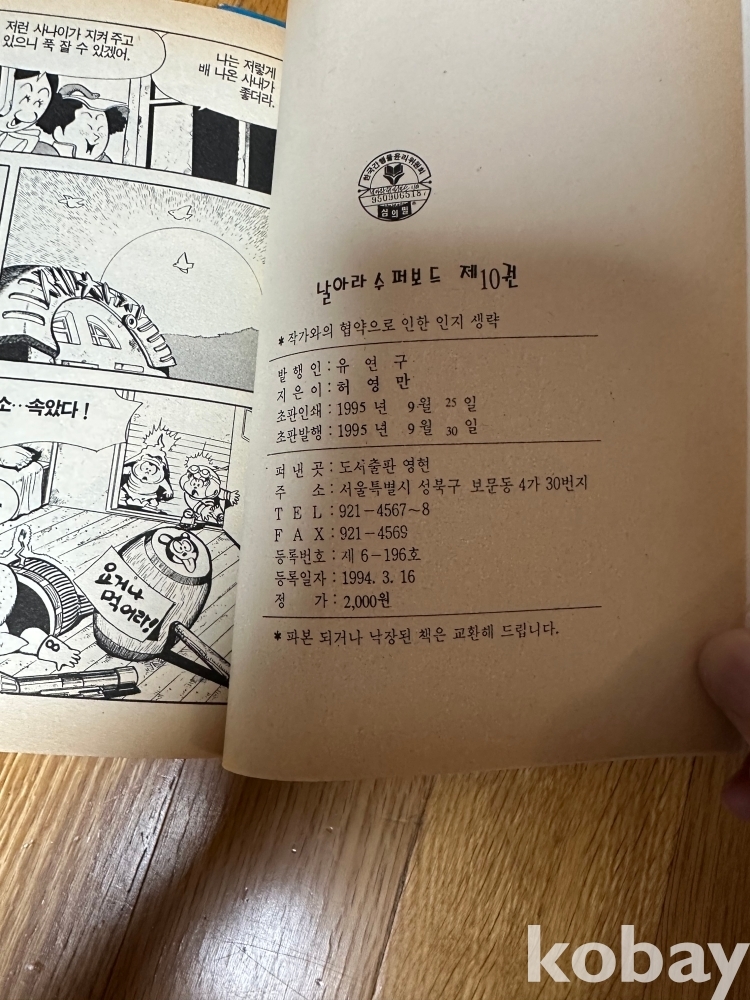 저런 사나이가 지켜 주고
있으니 푹 잘 수 있겠어.
나는 저렇게
배 나온 사내가
좋더라.
소‥속았다!
요거나
먹어라!
8
한국간행물윤리위원회
950906518
심의필
날아라 수퍼보드 제10권
*작가와의 협약으로 인한 인지 생략
발행인:유 연 구
지은이:허 영 만
초판인쇄:1995년 9월 25일
초판발행:1995년 9월 30일
펴낸곳:도서출판 영헌
주 소:서울특별시 성북구 보문동 4가 30번지
TEL:921-4567~8
FAX:921-4569
등록번호:제 6-196호
등록일자:1994. 3. 16
정 가:2,000원
*파본 되거나 낙장된 책은 교환해 드립니다.
kobay